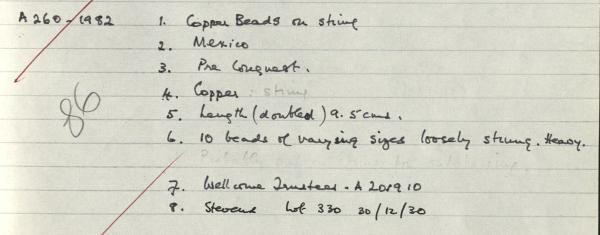 A 260-1982
1. Copper Beads on string
2. Mexico
3. Pre Conquest.
4. Copper : string
5. Length (doubled) 9.5cms.
86
6. 10 beads of varying sizes loosely strung. Heavy.
7. Wellcome Trustees - A 201910
8. Stevens Lot 330 30/12/30